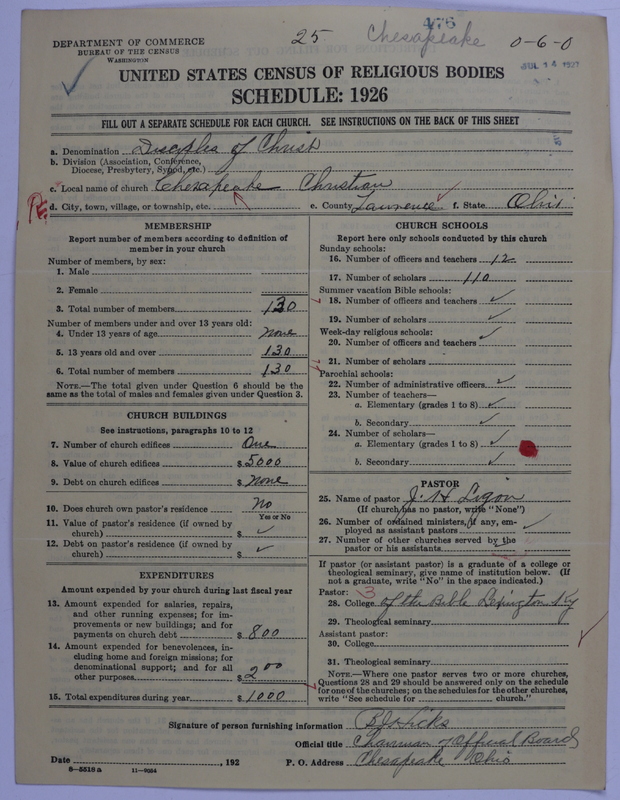 25 Chesapeake 0-6-0
476
DEPARTMENT OF COMMERCE
BUREAU OF THE CENSUS
WASHINGTON
JUL 14 1927
UNITED STATES CENSUS OF RELIGIOUS BODIES
SCHEDULE: 1926
FILL OUT A SEPARATE SCHEDULE FOR EACH CHURCH. SEE INSTRUCTIONS ON THE BACK OF THIS SHEET
a. Denomination Disciples of Christ
b. Division (Association, Conference,
Diocese, Presbytery, Synod, etc.)
c. Local name of church Chesapeake Christian
d. City, town, village, or township, etc. e. County Lawrence f. State Ohio
MEMBERSHIP
Report number of members according to definition of
member in your church
Number of members, by sex:
1. Male
2. Female
3. Total number of members 130
Number of members under and over 13 years old:
4. Under 13 years of age none
5. 13 years old and over 130
6. Total number of members 130
NOTE.—The total given under Question 6 should be the
same as the total of males and females given under Question 3.
CHURCH BUILDINGS
See instructions, paragraphs 10 to 12
7. Number of church edifices One
8. Value of church edifices $5000
9. Debt on church edifices $none
10. Does church own pastor's residence? No
Yes or No
11. Value of pastor's residence (if owned by
church) $ ✓
12. Debt on pastor's residence (if owned by
church) $ ✓
EXPENDITURES
Amount expended by your church during last fiscal year
13. Amount expended for salaries, repairs,
and other running expenses; for im-
provements or new buildings; and for
payments on church debt $800
14. Amount expended for benevolences, in-
cluding home and foreign missions; for
denominational support; and for all
other purposes $200
15. Total expenditures during year $1000
CHURCH SCHOOLS
Report here only schools conducted by this church
Sunday schools:
16. Number of officers and teachers 12
17. Number of scholars 110
Summer vacation Bible schools:
18. Number of officers and teachers ✓
19. Number of scholars ✓
Week-day religious schools:
20. Number of officers and teachers ✓
21. Number of scholars
Parochial schools:
22. Number of administrative officers ✓
23. Number of teachers—
a. Elementary (grades 1 to 8) ✓
b. Secondary ✓
24. Number of scholars—
a. Elementary (grades 1 to 8) ✓
b. Secondary ✓
PASTOR
25. Name of pastor J. H. Ligon
(If church has no pastor, write "None")
26. Number of ordained ministers, if any, em-
ployed as assistant pastors ✓
27. Number of other churches served by the
pastor or his assistants
If pastor (or assistant pastor) is a graduate of a college or
theological seminary, give name of institution below. (If
not a graduate, write "No" in the space indicated.)
Pastor: 3
28. College of the Bible Lexington Ky
29. Theological seminary
Assistant pastor:
30. College
31. Theological seminary
NOTE.—Where one pastor serves two or more churches,
Questions 28 and 29 should be answered only on the schedule
for one of the churches; on the schedules for the other churches,
write "See schedule for church."
Signature of person furnishing information Hicks
Official title Chairman of Official Board
Date , 192 P. O. Address Chesapeake Ohio
8—5518a 11—9084